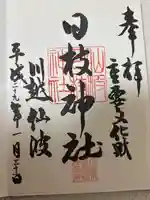 奉拝
重要文化財
日枝神社
川越仙波
平成二十九年一月二十日